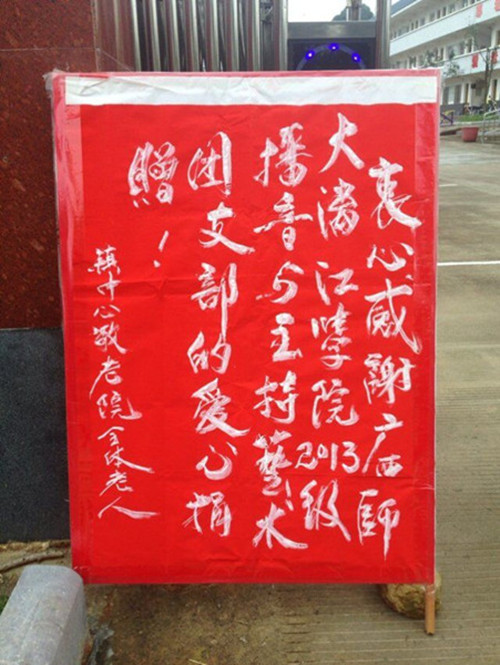 衷心感謝广西師
大漓江学院2013级
播音与主持藝术
团支部的爱心捐
赠！
镇中心敬老院全体老人